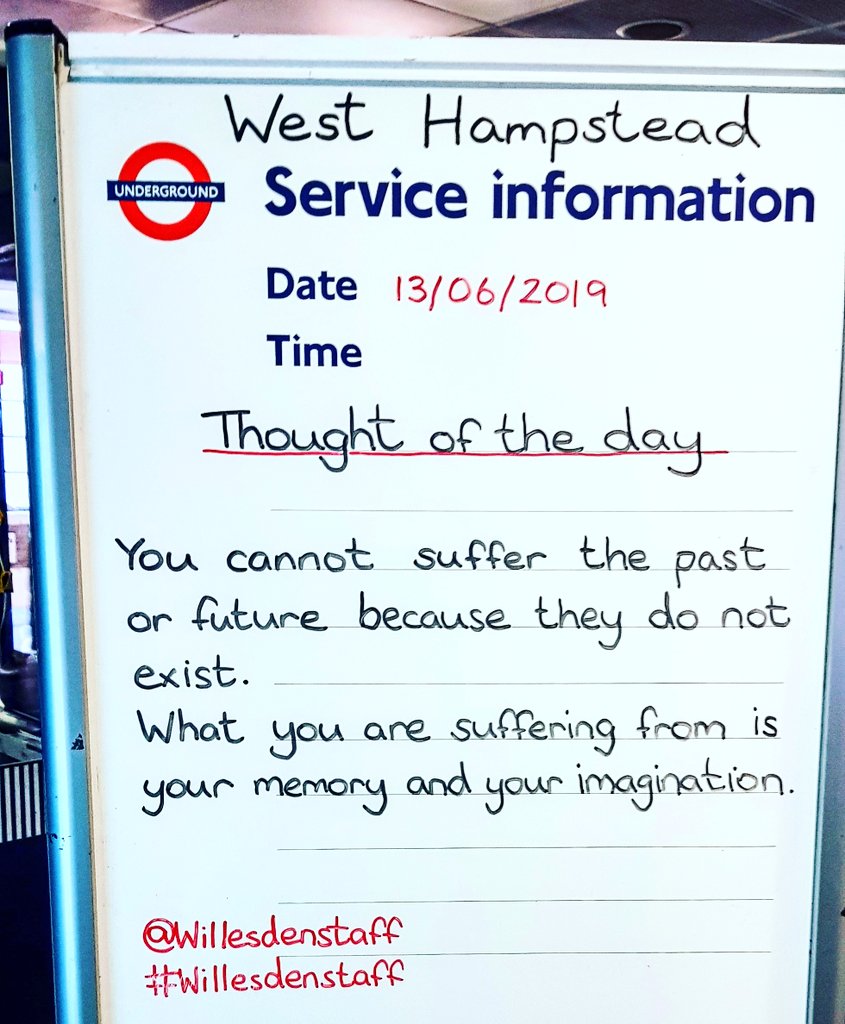 West Hampstead
UNDERGROUND
Service information
Date 13/06/2019
Time
Thought of the day
You cannot suffer the past
or future because they do not
exist.
What you are suffering from is
your memory and your imagination.
@Willesdenstaff
#Willesdenstaff